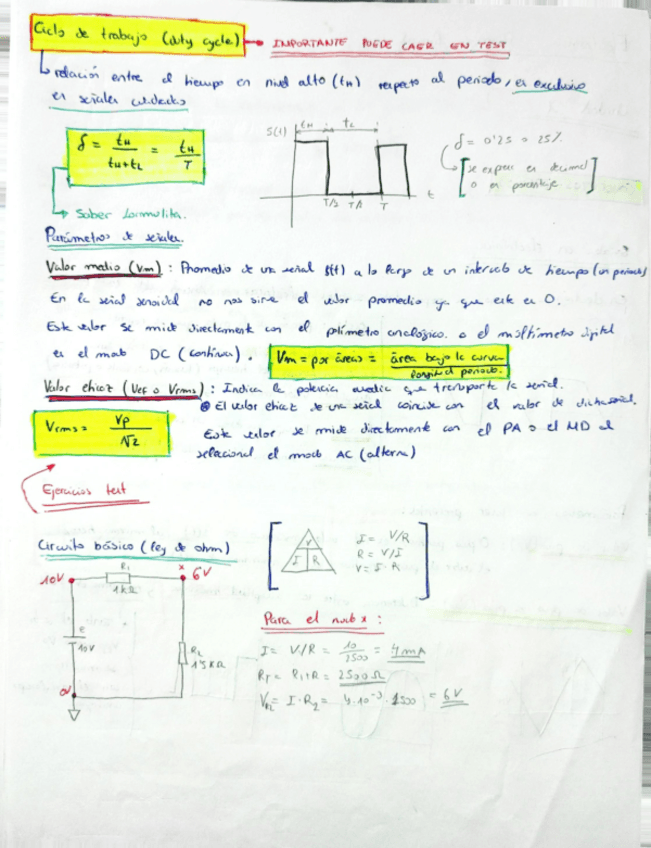 Ciclo de trabajo (duty cycle) → IMPORTANTE PUEDE CAER EN TEST
relación entre el tiempo en nivel alto (tH) respecto al periodo, es exclusivo
en señales cuadradas
δ = tH / (tH+tL) = tH / T
S(t) tH tL
T/2 T t
δ = 0'25 o 25%
[se expresa en decimal
o en porcentaje]
Saber formulita.
Parámetros de señales.
Valor medio (Vm): Promedio de una señal f(t) a lo largo de un intervalo de tiempo (un periodo)
En la señal senoidal no nos sirve el valor promedio ya que este es 0.
Este valor se mide directamente con el polímetro analógico o el multímetro digital
en el modo DC (continua). Vm = por áreas = área bajo la curva / longitud periodo.
Valor eficaz (Vef o Vrms): Indica la potencia media que transporta la señal.
El valor eficaz de una señal coincide con el valor de
Vrms = Vp / √2
Este valor se mide directamente con el PA o el MD al
seleccionar el modo AC (alterna)
Ejercicios test
Circuito básico (ley de ohm)
V I R
I = V/R
R = V/I
V = I · R
10V R1 1kΩ x 6V
e 10V
R2 1'5kΩ
0V
Para el nodo x:
I = V/R = 10/2500 = 4mA
RT = R1+R = 2500Ω
VR2 = I · R2 = 4·10⁻³ · 1500 = 6V